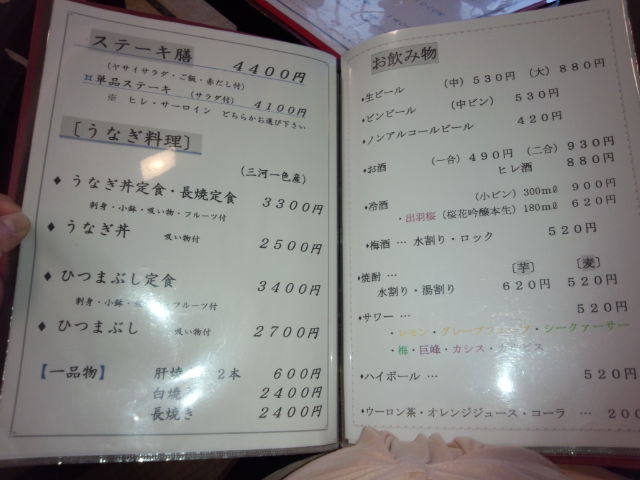 ステーキ膳 4400円
(ヤサイサラダ・ご飯・赤だし付)
単品ステーキ (サラダ付) 4100円
※ ヒレ・サーロイン どちらかお選び下さい
［うなぎ料理］
(三河一色産)
◆ うなぎ丼定食・長焼定食 3300円
刺身・小鉢・吸い物・フルーツ付
◆ うなぎ丼 吸い物付 2500円
◆ ひつまぶし定食 3400円
刺身・小鉢・吸い物・フルーツ付
◆ ひつまぶし 吸い物付 2700円
【一品物】 肝焼 2本 600円
白焼 2400円
長焼き 2400円
お飲み物
♦生ビール (中) 530円 (大) 880円
♦ビンビール (中ビン) 530円
♦ノンアルコールビール 420円
♦お酒 (一合) 490円 (二合) 930円
ヒレ酒 880円
♦冷酒 (小ビン) 300ml 900円
・出羽桜 (桜花吟醸本生) 180ml 620円
♦梅酒 … 水割り・ロック 520円
♦焼酎 … ［芋］ ［麦］
水割り・湯割り 620円 520円
♦サワー … 520円
・レモン・グレープフルーツ・シークァーサー
・梅・巨峰・カシス・
♦ハイボール … 520円
♦ウーロン茶・オレンジジュース・コーラ … 200